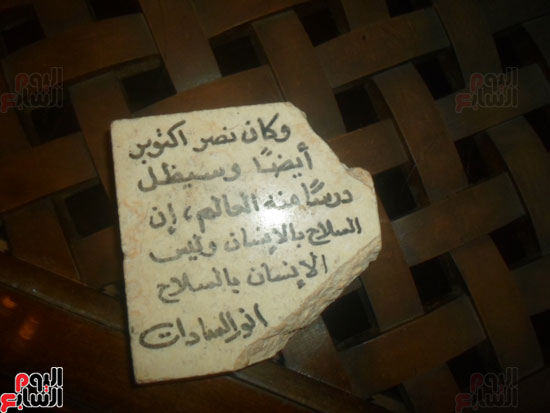 وكان نصر اكتوبر
أيضًا وسيظل
درسًا منه العالم، إن
السلاح بالإنسان وليس
الإنسان بالسلاح
انور السادات
اليوم السابع
اليوم السابع
اليوم السابع
اليوم السابع